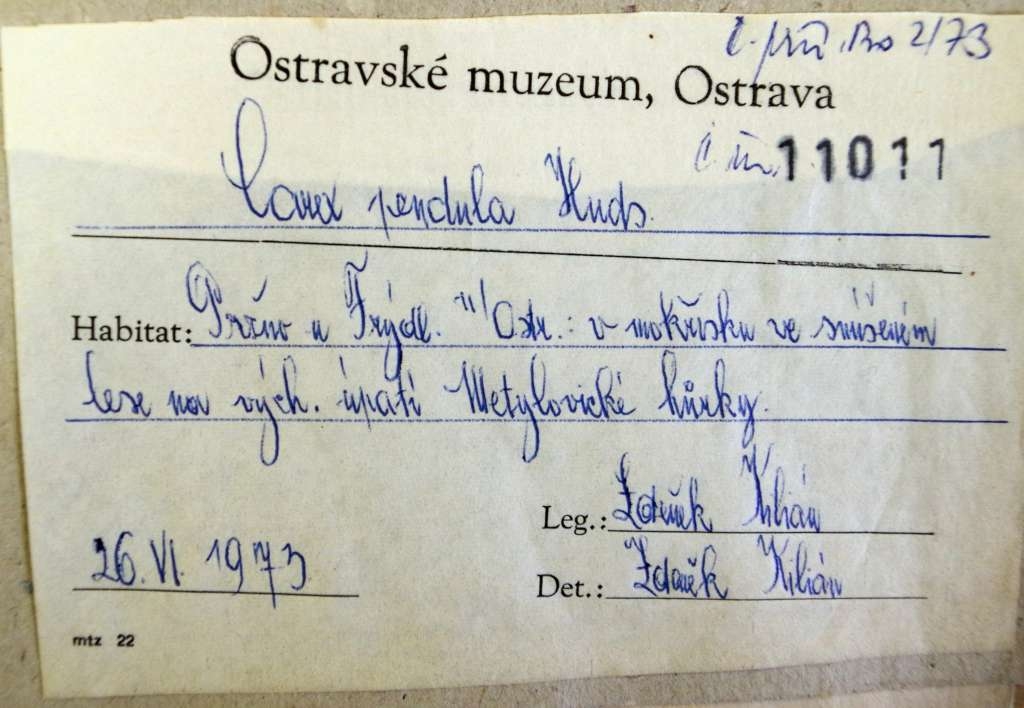 č. přír. Bo 2/73
Ostravské muzeum, Ostrava
č. in. 11011
Carex pendula Huds.
Habitat: Pržno u Frýdl. n/Ostr.: v mokřisku ve smíšeném
lese na vých. úpatí Metylovické hůrky.
Leg.: Zdeněk Kilián
26. VI. 1973
Det.: Zdeněk Kilián
mtz 22